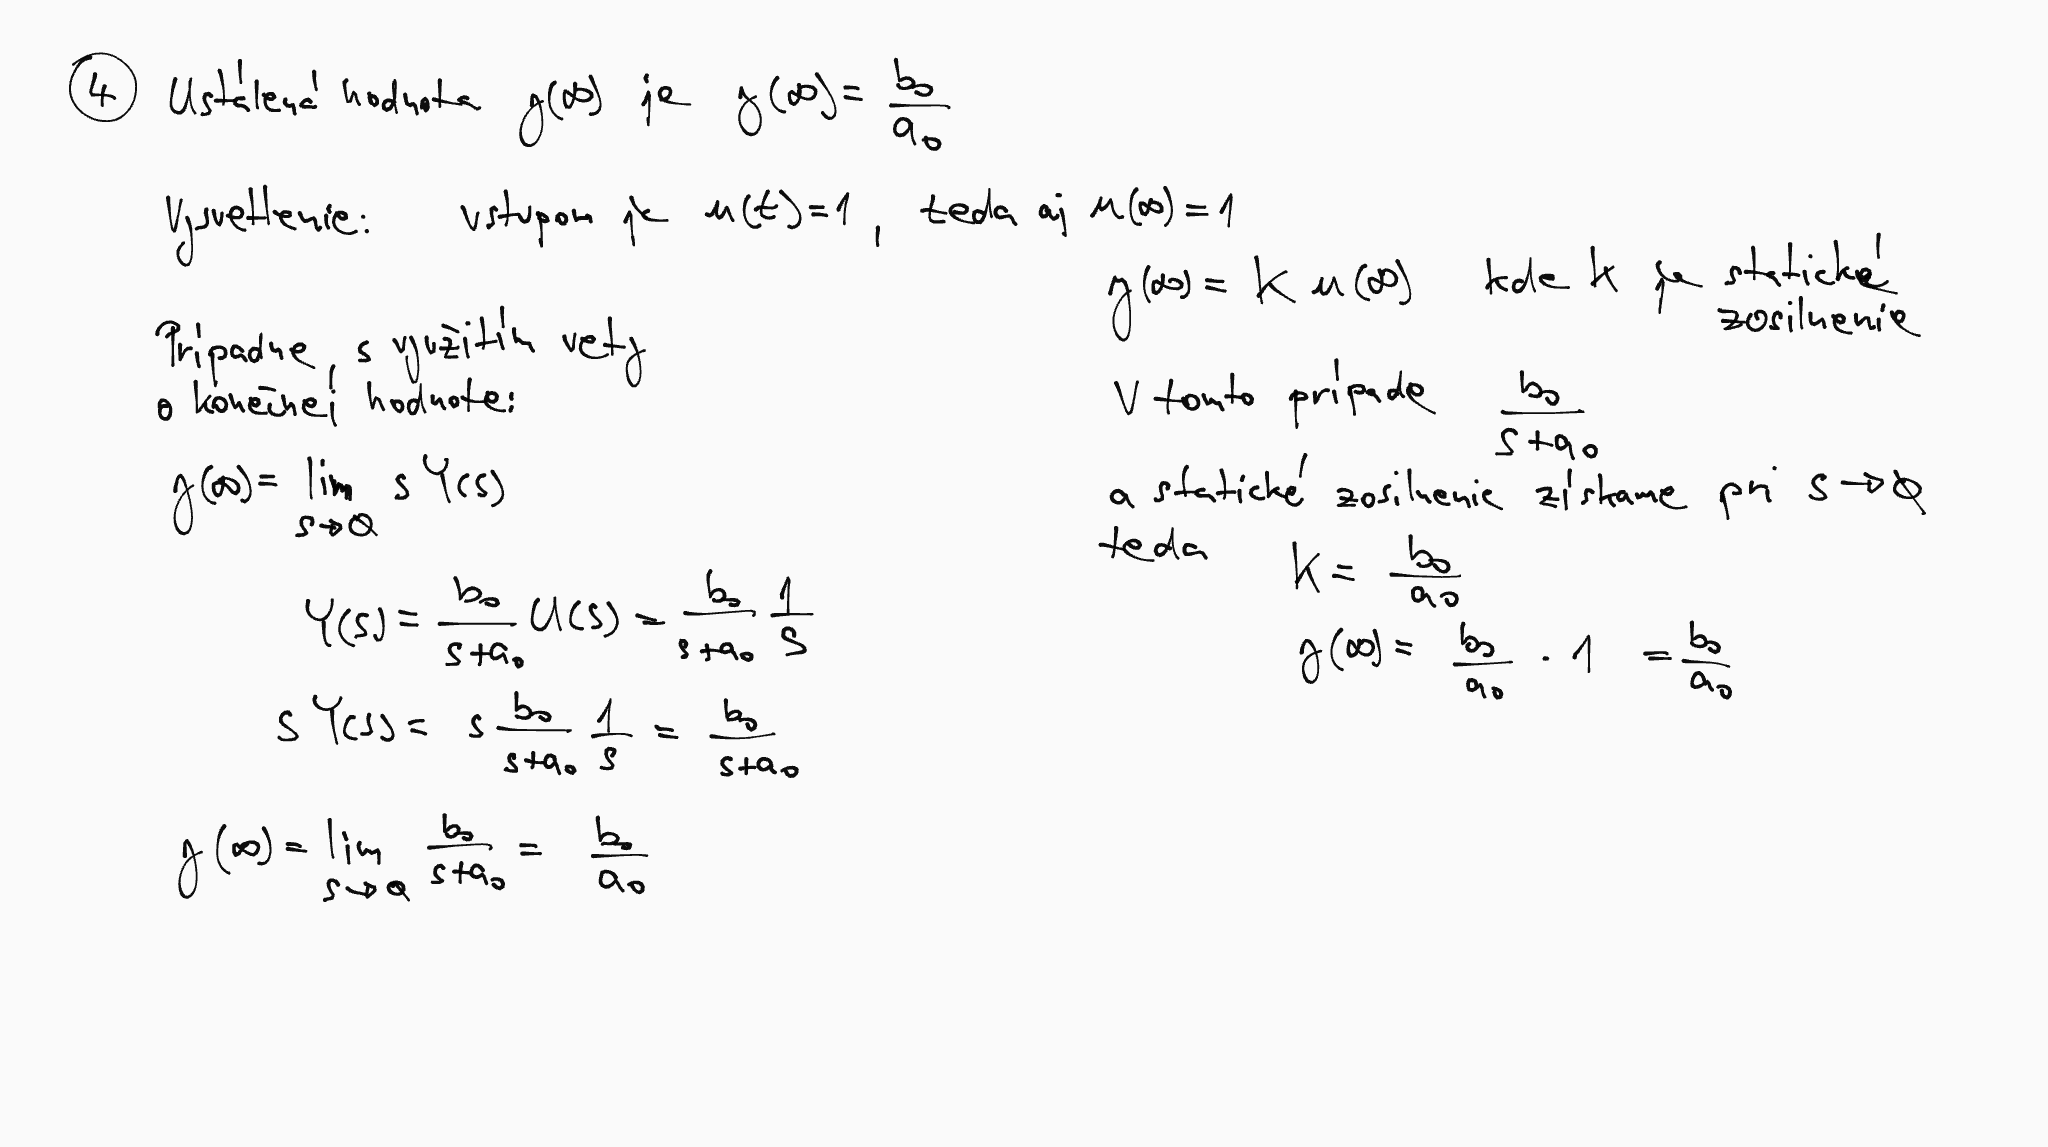 ④ Ustálená hodnota y(∞) je y(∞) = b₀/a₀
Vysvetlenie: vstupom je u(t)=1, teda aj u(∞)=1
y(∞) = K u(∞) kde K je statické
zosilnenie
V tomto prípade b₀/(s+a₀)
a statické zosilnenie získame pri s→0
teda K = b₀/a₀
y(∞) = b₀/a₀ · 1 = b₀/a₀
Prípadne, s využitím vety
o konečnej hodnote:
y(∞) = lim s→0 s Y(s)
Y(s) = b₀/(s+a₀) U(s) = b₀/(s+a₀) 1/s
s Y(s) = s b₀/(s+a₀) 1/s = b₀/(s+a₀)
y(∞) = lim s→0 b₀/(s+a₀) = b₀/a₀